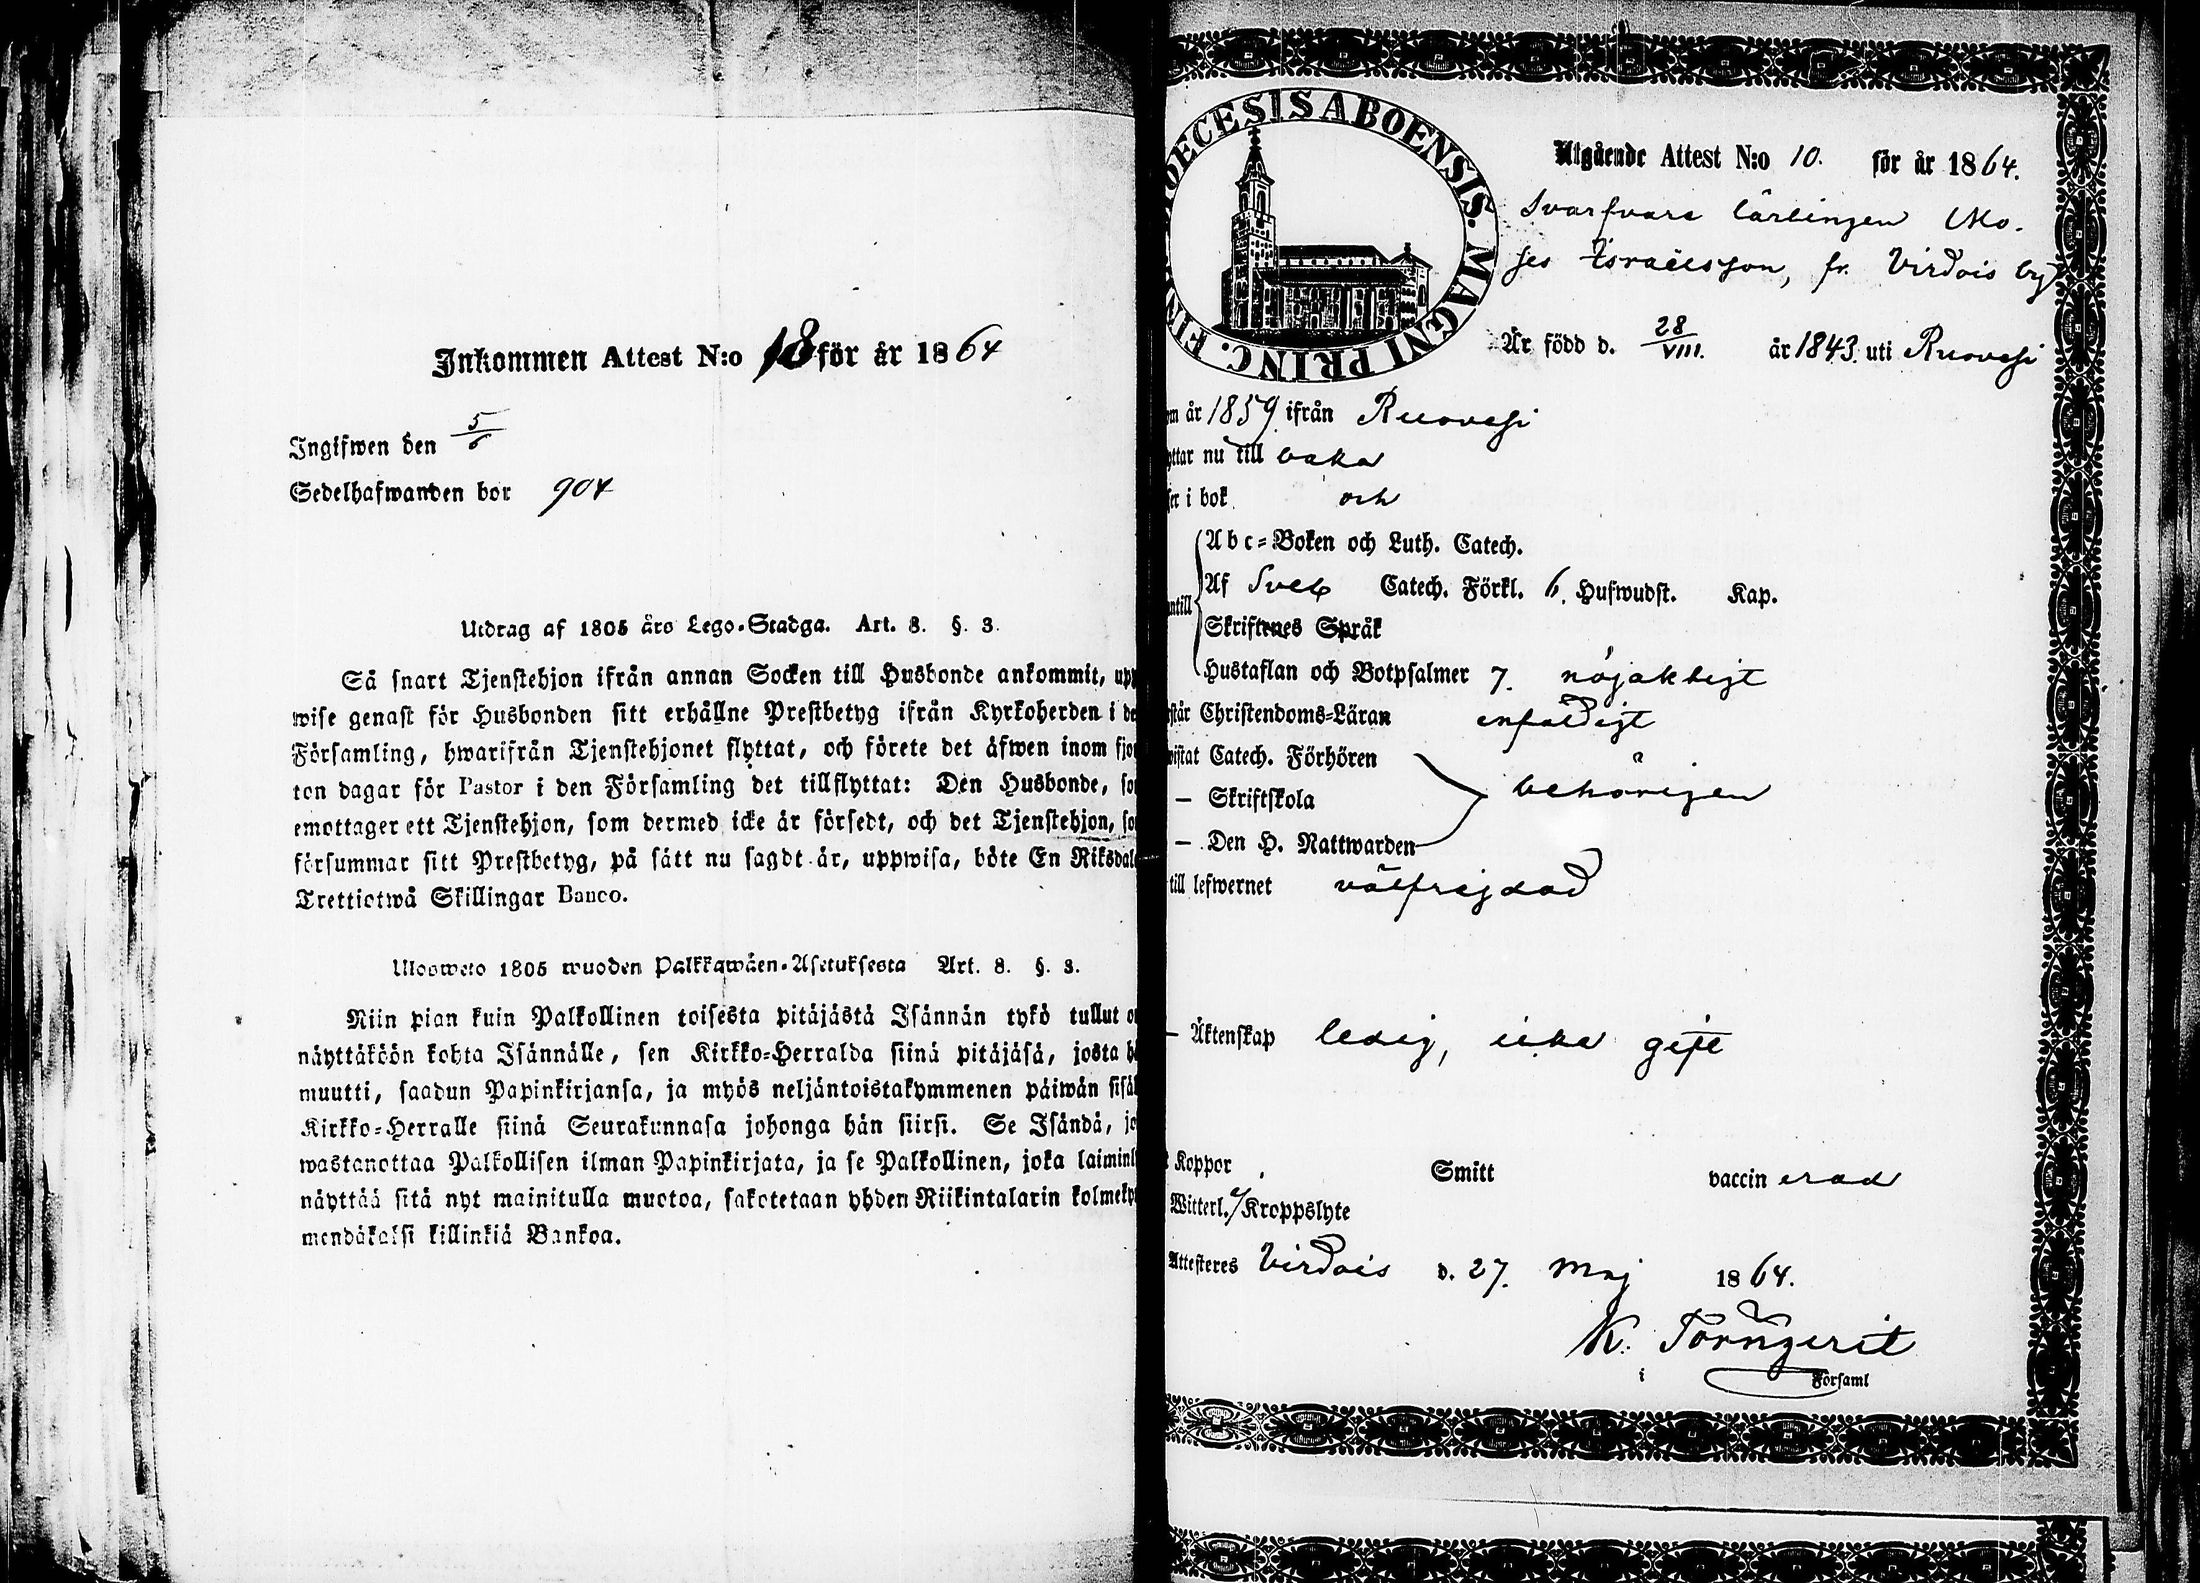 Inkommen Attest N:o 18 för år 1864
Ingifwen den 5/6
Sedelhafwanden bor 904
Utdrag af 1805 års Lego-Stadga. Art. 8. §. 3.
Så snart Tjenstehjon ifrån annan Socken till Husbonde ankommit, upp
wise genast för Husbonden sitt erhållne Prestbetyg ifrån Kyrkoherden i de
Församling, hwarifrån Tjenstehjonet flyttat, och förete det äfwen inom fjor
ton dagar för Pastor i den Församling det tillflyttat: Den Husbonde, so
emottager ett Tjenstehjon, som dermed icke är försedt, och det Tjenstehjon, so
försummar sitt Prestbetyg, på sätt nu sagdt är, uppwisa, böte En Riksdale
Trettiotwå Skillingar Banco.
Ulosweto 1805 wuoden Palkkawäen-Asetuksesta Art. 8. §. 3.
Niin pian kuin Palkollinen toisesta pitäjästä Isännän tykö tullut o
näyttäköön kohta Isännälle, sen Kirkko-Herralda siinä pitäjäsä, josta hä
muutti, saadun Papinkirjansa, ja myös neljäntoistakymmenen päiwän sisäl
Kirkko-Herralle siinä Seurakunnasa johonga hän siirsi. Se Isändä, jo
wastanottaa Palkollisen ilman Papinkirjata, ja se Palkollinen, joka laiminl
näyttää sitä nyt mainitulla muotoa, sakotetaan yhden Riikintalarin kolmeky
mendäkaksi killinkiä Bankoa.
DIOECESIS ABOENSIS. MAGNI PRINC. FIN
Utgående Attest N:o 10. för år 1864.
Svarfvare lärlingen Mo-
ses Israelsson, fr. Virdois by
Är född d. 28/VIII. år 1843. uti Ruovesi
m år 1859 ifrån Ruovesi
yttar nu till baka
ser i bok och
Abc-Boken och Luth. Catech.
ntill Af Sveb Catech. Förkl. 6. Hufwudst. Kap.
Skriftenes Språk
Hustaflan och Botpsalmer 7. nöjaktigt
rstår Christendoms-Läran enfaldigt
wistat Catech. Förhören
— Skriftskola behörigen
— Den H. Nattwarden
till lefwernet välfrejdad
— Äktenskap ledig, icke gift
t Koppor Smitt vaccin erad
Witterl. Kroppslyte
Attesteres Virdois d. 27. Maj 1864.
K. Törngvist
i Församl